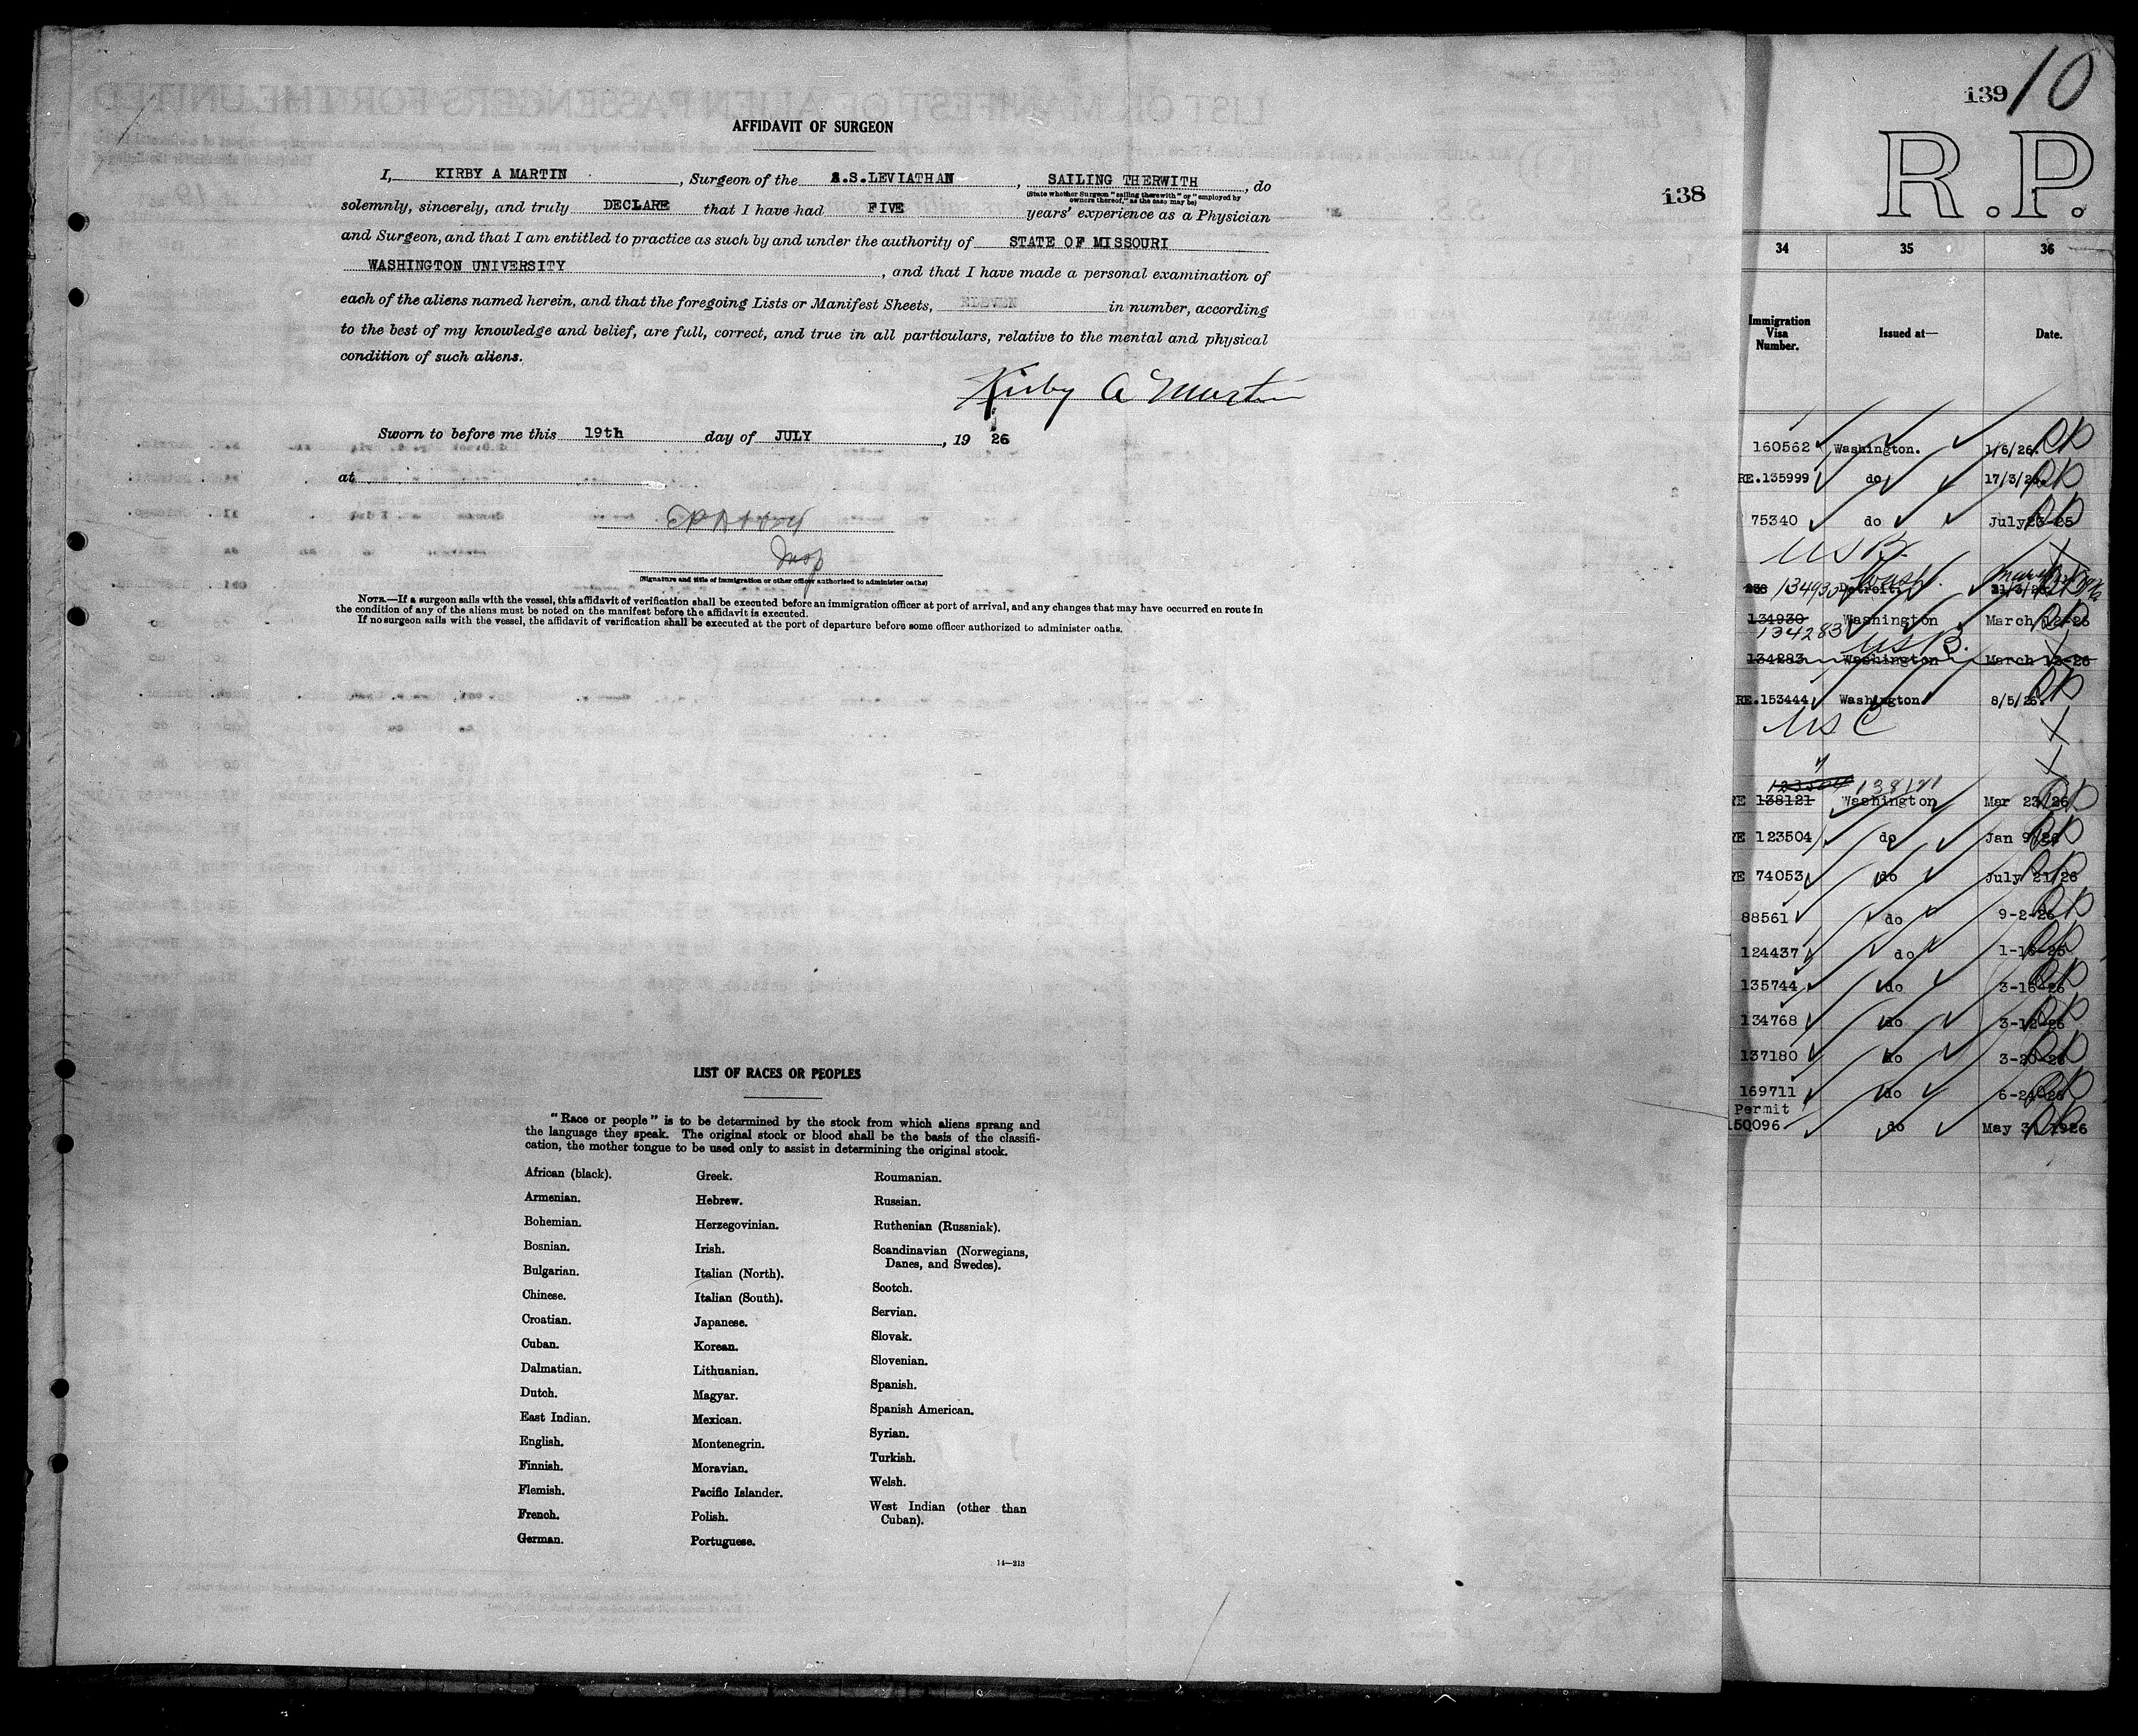 AFFIDAVIT OF SURGEON
I, KIRBY A MARTIN, Surgeon of the S.S.LEVIATHAN, SAILING THERWITH, do
(State whether Surgeon "sailing therewith" or "employed by owners thereof," as the case may be)
solemnly, sincerely, and truly DECLARE that I have had FIVE years' experience as a Physician
and Surgeon, and that I am entitled to practice as such by and under the authority of STATE OF MISSOURI
WASHINGTON UNIVERSITY, and that I have made a personal examination of
each of the aliens named herein, and that the foregoing Lists or Manifest Sheets, ELEVEN in number, according
to the best of my knowledge and belief, are full, correct, and true in all particulars, relative to the mental and physical
condition of such aliens.
Kirby A Martin
Sworn to before me this 19th day of JULY, 19 26
at
Insp
(Signature and title of immigration or other officer authorized to administer oaths)
NOTE.—If a surgeon sails with the vessel, this affidavit of verification shall be executed before an immigration officer at port of arrival, and any changes that may have occurred en route in
the condition of any of the aliens must be noted on the manifest before the affidavit is executed.
If no surgeon sails with the vessel, the affidavit of verification shall be executed at the port of departure before some officer authorized to administer oaths.
138
LIST OF RACES OR PEOPLES
"Race or people" is to be determined by the stock from which aliens sprang and
the language they speak. The original stock or blood shall be the basis of the classifi-
cation, the mother tongue to be used only to assist in determining the original stock.
African (black).
Armenian.
Bohemian.
Bosnian.
Bulgarian.
Chinese.
Croatian.
Cuban.
Dalmatian.
Dutch.
East Indian.
English.
Finnish.
Flemish.
French.
German.
Greek.
Hebrew.
Herzegovinian.
Irish.
Italian (North).
Italian (South).
Japanese.
Korean.
Lithuanian.
Magyar.
Mexican.
Montenegrin.
Moravian.
Pacific Islander.
Polish.
Portuguese.
Roumanian.
Russian.
Ruthenian (Russniak).
Scandinavian (Norwegians,
Danes, and Swedes).
Scotch.
Servian.
Slovak.
Slovenian.
Spanish.
Spanish American.
Syrian.
Turkish.
Welsh.
West Indian (other than
Cuban).
14—213
139 10
R.P.
34 35 36
Immigration Visa Number. Issued at— Date.
160562 Washington. 1/6/26.
RE.135999 do 17/3/26.
75340 do July
USB.
134930 Detroit Wash. March
134930 Washington March 12-26
134283 USB.
134283 Washington March 12-26
RE.153444 Washington 8/5/26.
USC
123504 138121
RE 138121 Washington Mar 23/26
RE 123504 do Jan 9/26
RE 74053 do July 21/26
88561 do 9-2-26
124437 do
135744 do 3-16-26
134768 do 3-12-26
137180 do 3-20-26
169711 do
Permit
150096 do May 1926